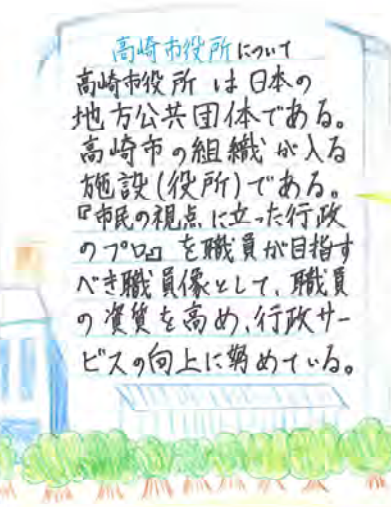 高崎市役所について
高崎市役所は日本の
地方公共団体である。
高崎市の組織が入る
施設(役所)である。
『市民の視点に立った行政
のプロ』を職員が目指す
べき職員像として、職員
の資質を高め、行政サー
ビスの向上に努めている。